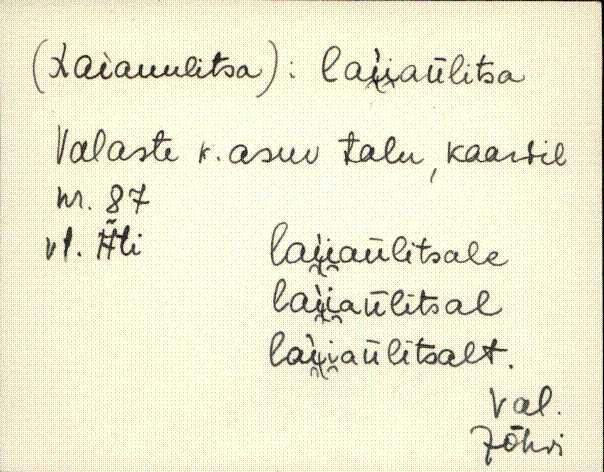 (Laiauulitsa): lai̬i̬aūlitsa
Valaste k. asuv talu, kaardil
nr. 87
vt. Äti
lai̬i̬aūlitsale
lai̬i̬aūlitsal
lai̬i̬aūlitsalt.
Val.
Jõhvi